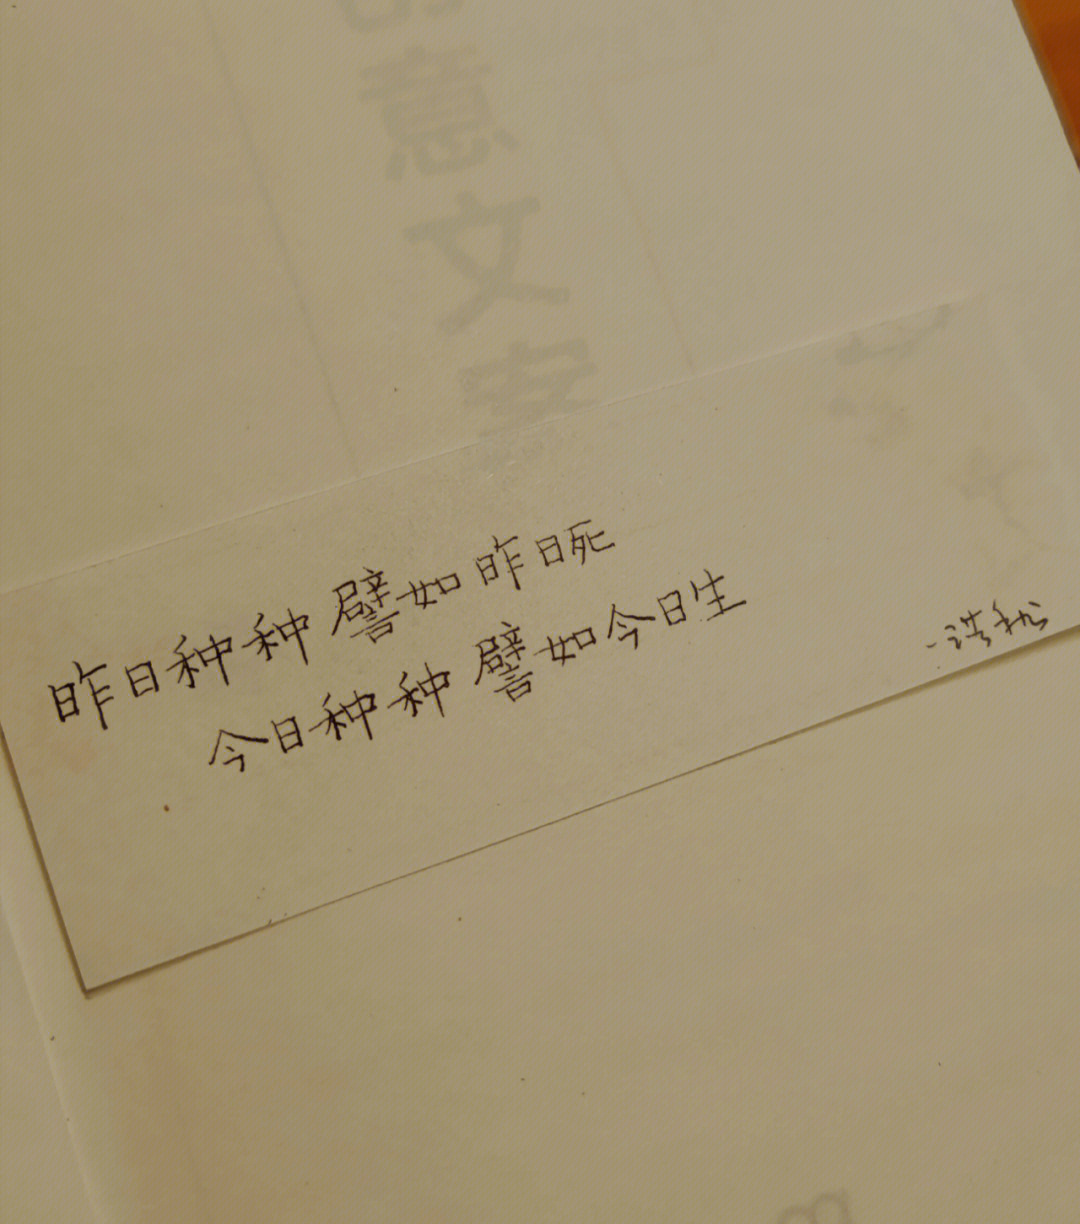 意文案
昨日种种譬如昨日死
今日种种譬如今日生